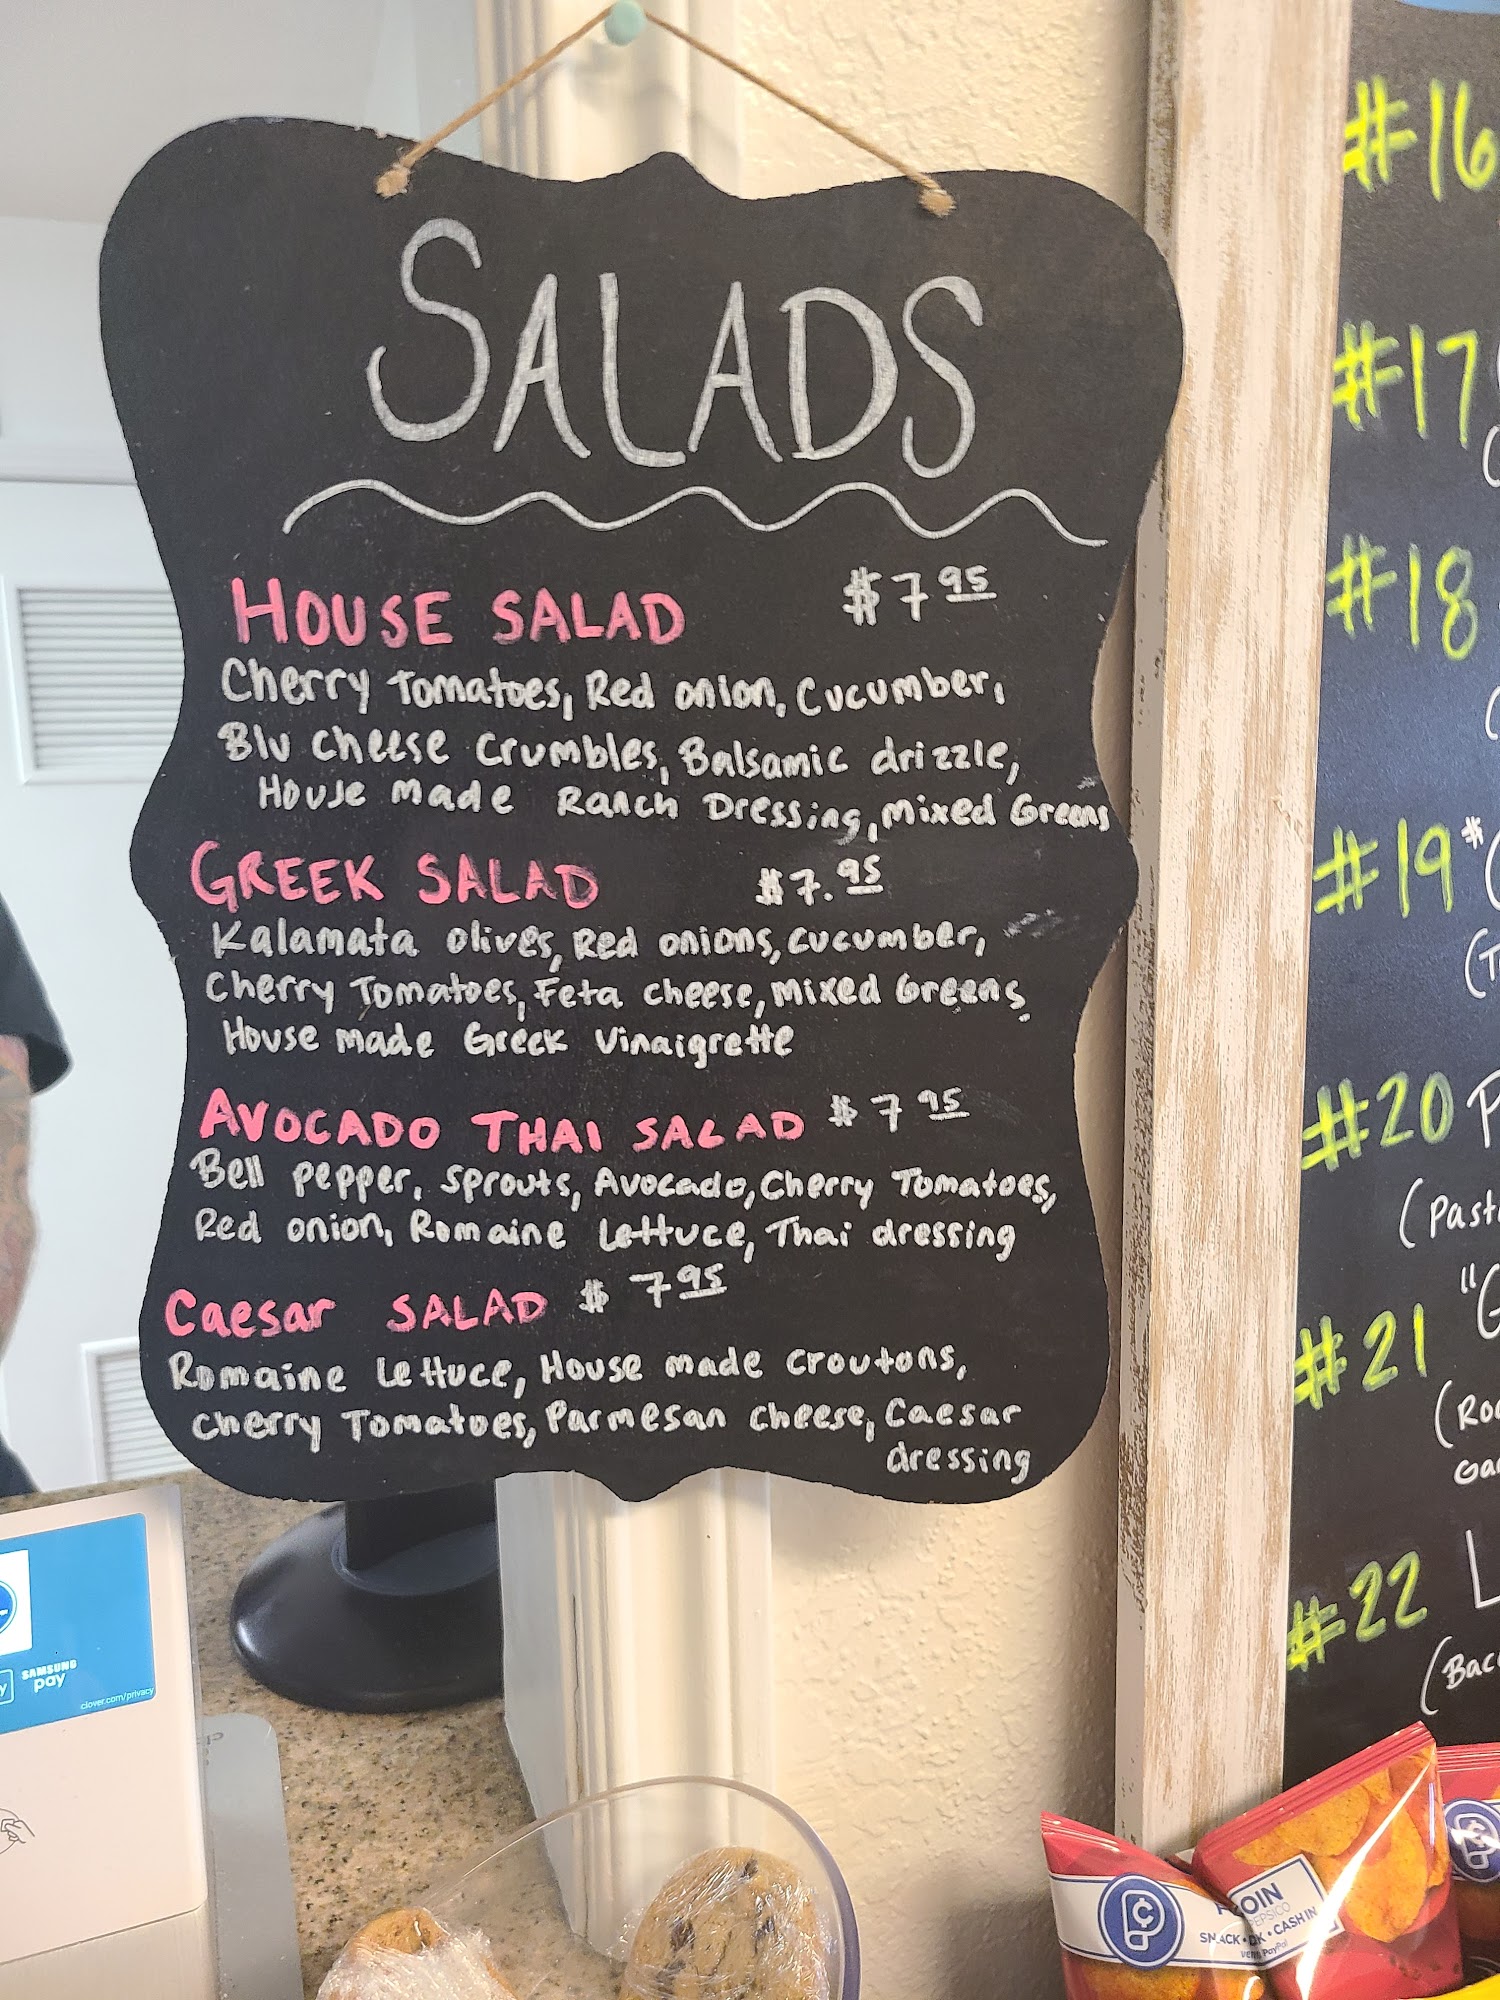 SALADS
HOUSE SALAD $7 95
Cherry Tomatoes, Red onion, Cucumber,
Blu cheese crumbles, Balsamic drizzle,
House made Ranch Dressing, Mixed Greens
GREEK SALAD $7.95
Kalamata olives, Red onions, cucumber,
Cherry Tomatoes, Feta cheese, Mixed Greens,
House made Greek Vinaigrette
AVOCADO THAI SALAD $7 95
Bell pepper, sprouts, Avocado, Cherry Tomatoes,
Red onion, Romaine Lettuce, Thai dressing
Caesar SALAD $ 7 95
Romaine Lettuce, House made croutons,
cherry Tomatoes, Parmesan cheese, Caesar
dressing
#16
#17
#18
#19*
#20
(Past
#21 "G
(Roa
Gar
#22 L
(Bac
SAMSUNG
pay
clover.com/privacy
PEPSICO
SNACK • • CASH IN
PayPal